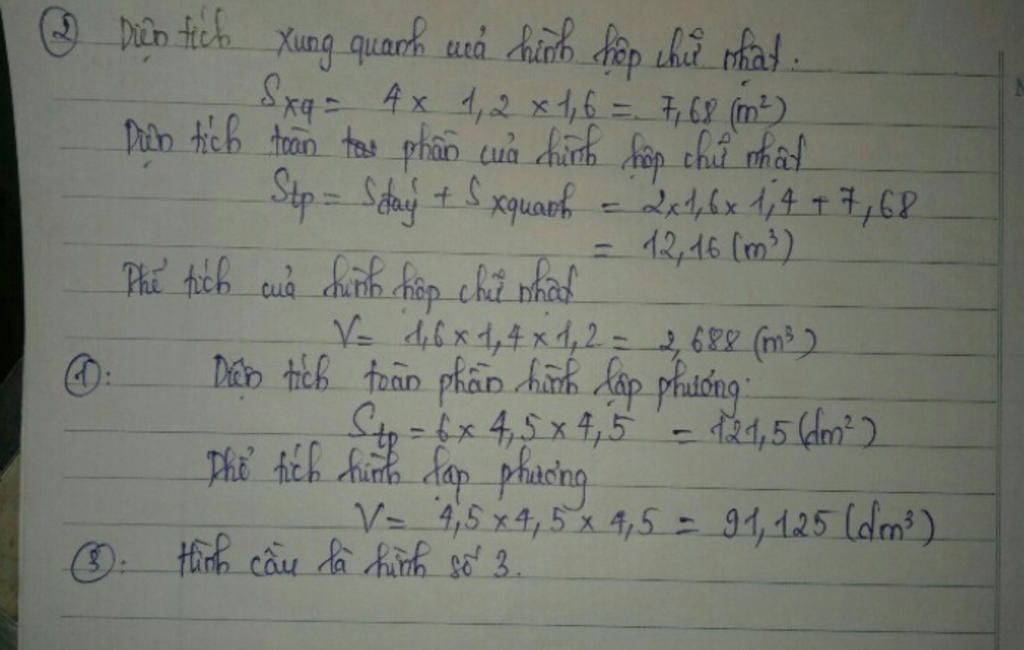 ② Diện tích xung quanh của hình hộp chữ nhật.
Sxq = 4 x 1,2 x 1,6 = 7,68 (m²)
Diện tích toàn phần của hình hộp chữ nhật
Stp = Sđáy + Sxquanh = 2x1,6x 1,4 + 7,68
= 12,16 (m³)
Thể tích của hình hộp chữ nhật
V = 1,6 x 1,4 x 1,2 = 2,688 (m³)
①: Diện tích toàn phần hình lập phương:
Stp = 6 x 4,5 x 4,5 = 121,5 (dm²)
Thể tích hình lập phương
V = 4,5 x 4,5 x 4,5 = 91,125 (dm³)
③: Hình cầu là hình số 3.